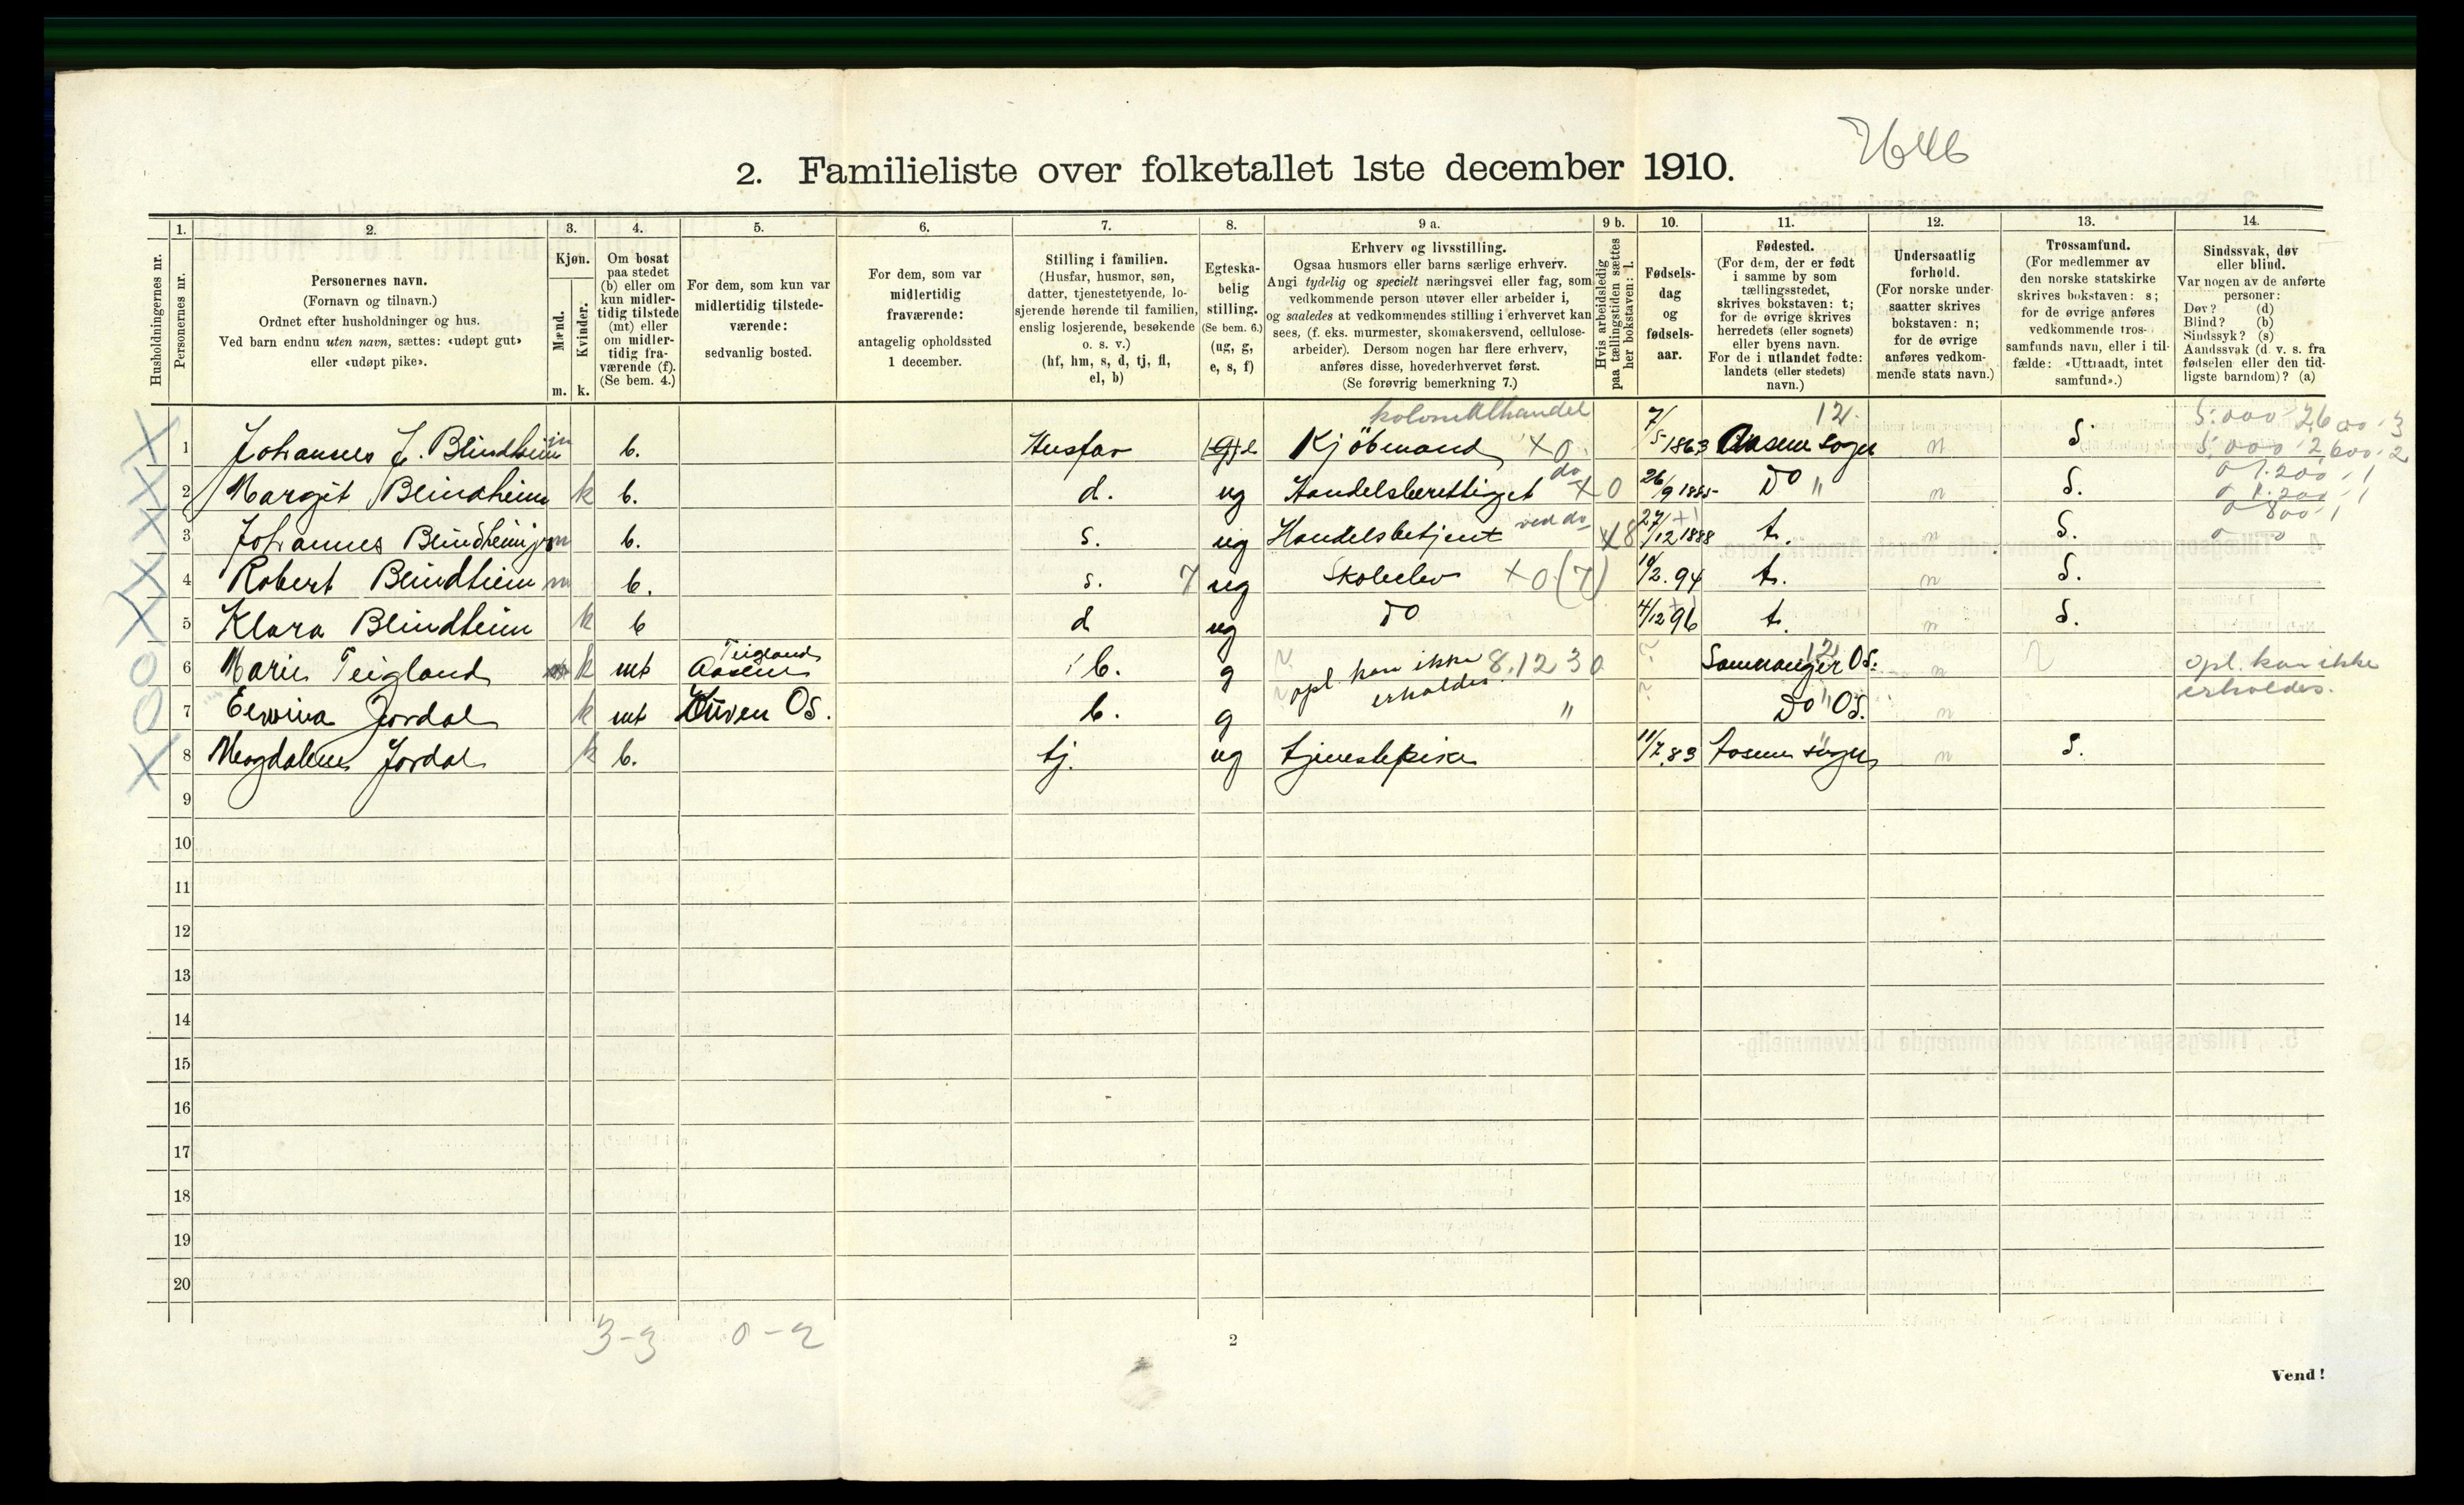 2. Familieliste over folketallet 1ste december 1910.
Husholdningernes nr.
1.
Personernes nr.
2.
Personernes navn.
(Fornavn og tilnavn.)
Ordnet efter husholdninger og hus.
Ved barn endnu uten navn, sættes: «udøpt gut»
eller «udøpt pike».
3.
Kjøn.
Mænd.
Kvinder.
m. k.
4.
Om bosat
paa stedet
(b) eller om
kun midler-
tidig tilstede
(mt) eller
om midler-
tidig fra-
værende (f).
(Se bem. 4.)
5.
For dem, som kun var
midlertidig tilstede-
værende:
sedvanlig bosted.
6.
For dem, som var
midlertidig
fraværende:
antagelig opholdssted
1 december.
7.
Stilling i familien.
(Husfar, husmor, søn,
datter, tjenestetyende, lo-
sjerende hørende til familien,
enslig losjerende, besøkende
o. s. v.)
(hf, hm, s, d, tj, fl,
el, b)
8.
Egteska-
belig
stilling.
(Se bem. 6.)
(ug, g,
e, s, f)
9 a.
Erhverv og livsstilling.
Ogsaa husmors eller barns særlige erhverv.
Angi tydelig og specielt næringsvei eller fag, som
vedkommende person utøver eller arbeider i,
og saaledes at vedkommendes stilling i erhvervet kan
sees, (f. eks. murmester, skomakersvend, cellulose-
arbeider). Dersom nogen har flere erhverv,
anføres disse, hovederhvervet først.
(Se forøvrig bemerkning 7.)
9 b.
Hvis arbeidsledig
paa tællingstiden sættes
her bokstaven: l.
10.
Fødsels-
dag
og
fødsels-
aar.
11.
Fødested.
(For dem, der er født
i samme by som
tællingsstedet,
skrives bokstaven: t;
for de øvrige skrives
herredets (eller sognets)
eller byens navn.
For de i utlandet fødte:
landets (eller stedets)
navn.)
12.
Undersaatlig
forhold.
(For norske under-
saatter skrives
bokstaven: n;
for de øvrige
anføres vedkom-
mende stats navn.)
13.
Trossamfund.
(For medlemmer av
den norske statskirke
skrives bokstaven: s;
for de øvrige anføres
vedkommende tros-
samfunds navn, eller i til-
fælde: «Uttraadt, intet
samfund».)
14.
Sindssvak, døv
eller blind.
Var nogen av de anførte
personer:
Døv? (d)
Blind? (b)
Sindssyk? (s)
Aandssvak (d. v. s. fra
fødselen eller den tid-
ligste barndom)? (a)
kolonialhandel 12.
1 Johannes J. Blindheim m b. Husfar e Kjöbmand X 0 7/5 1863 Aasene sogn n S. 5.000 2,600 2
2 Margit Blindheim k b. d. ug Handelsberettiget do X 0 26/9 1885 Do " n S. 0 1.200 1
3 Johannes Blindheim jr m b. s. ug Handelsbetjent ved do X 8 27/12 1888 t. n S.
4 Robert Blindheim m b. s. 7 ug Skoleelev X 0 (7) 10/2. 94 t. n S.
5 Klara Blindheim k b d ug Do 4/12 96 t. n S.
6 Marie Teigland k mt Teigland Aasene b. g opl. kan ikke erholdes. 8.12 30 ? Samnanger Os. 12 n opl. kan ikke erholdes.
7 Jordal k mt Os. b. g " ? Do " Os. n
8 Magdalene Jordal k b. tj. ug tjenestepike 11/7 83 Aasene sogn n S.
9
10
11
12
13
14
15
16
17
18
19
20
3-3 0-2
2
Vend!